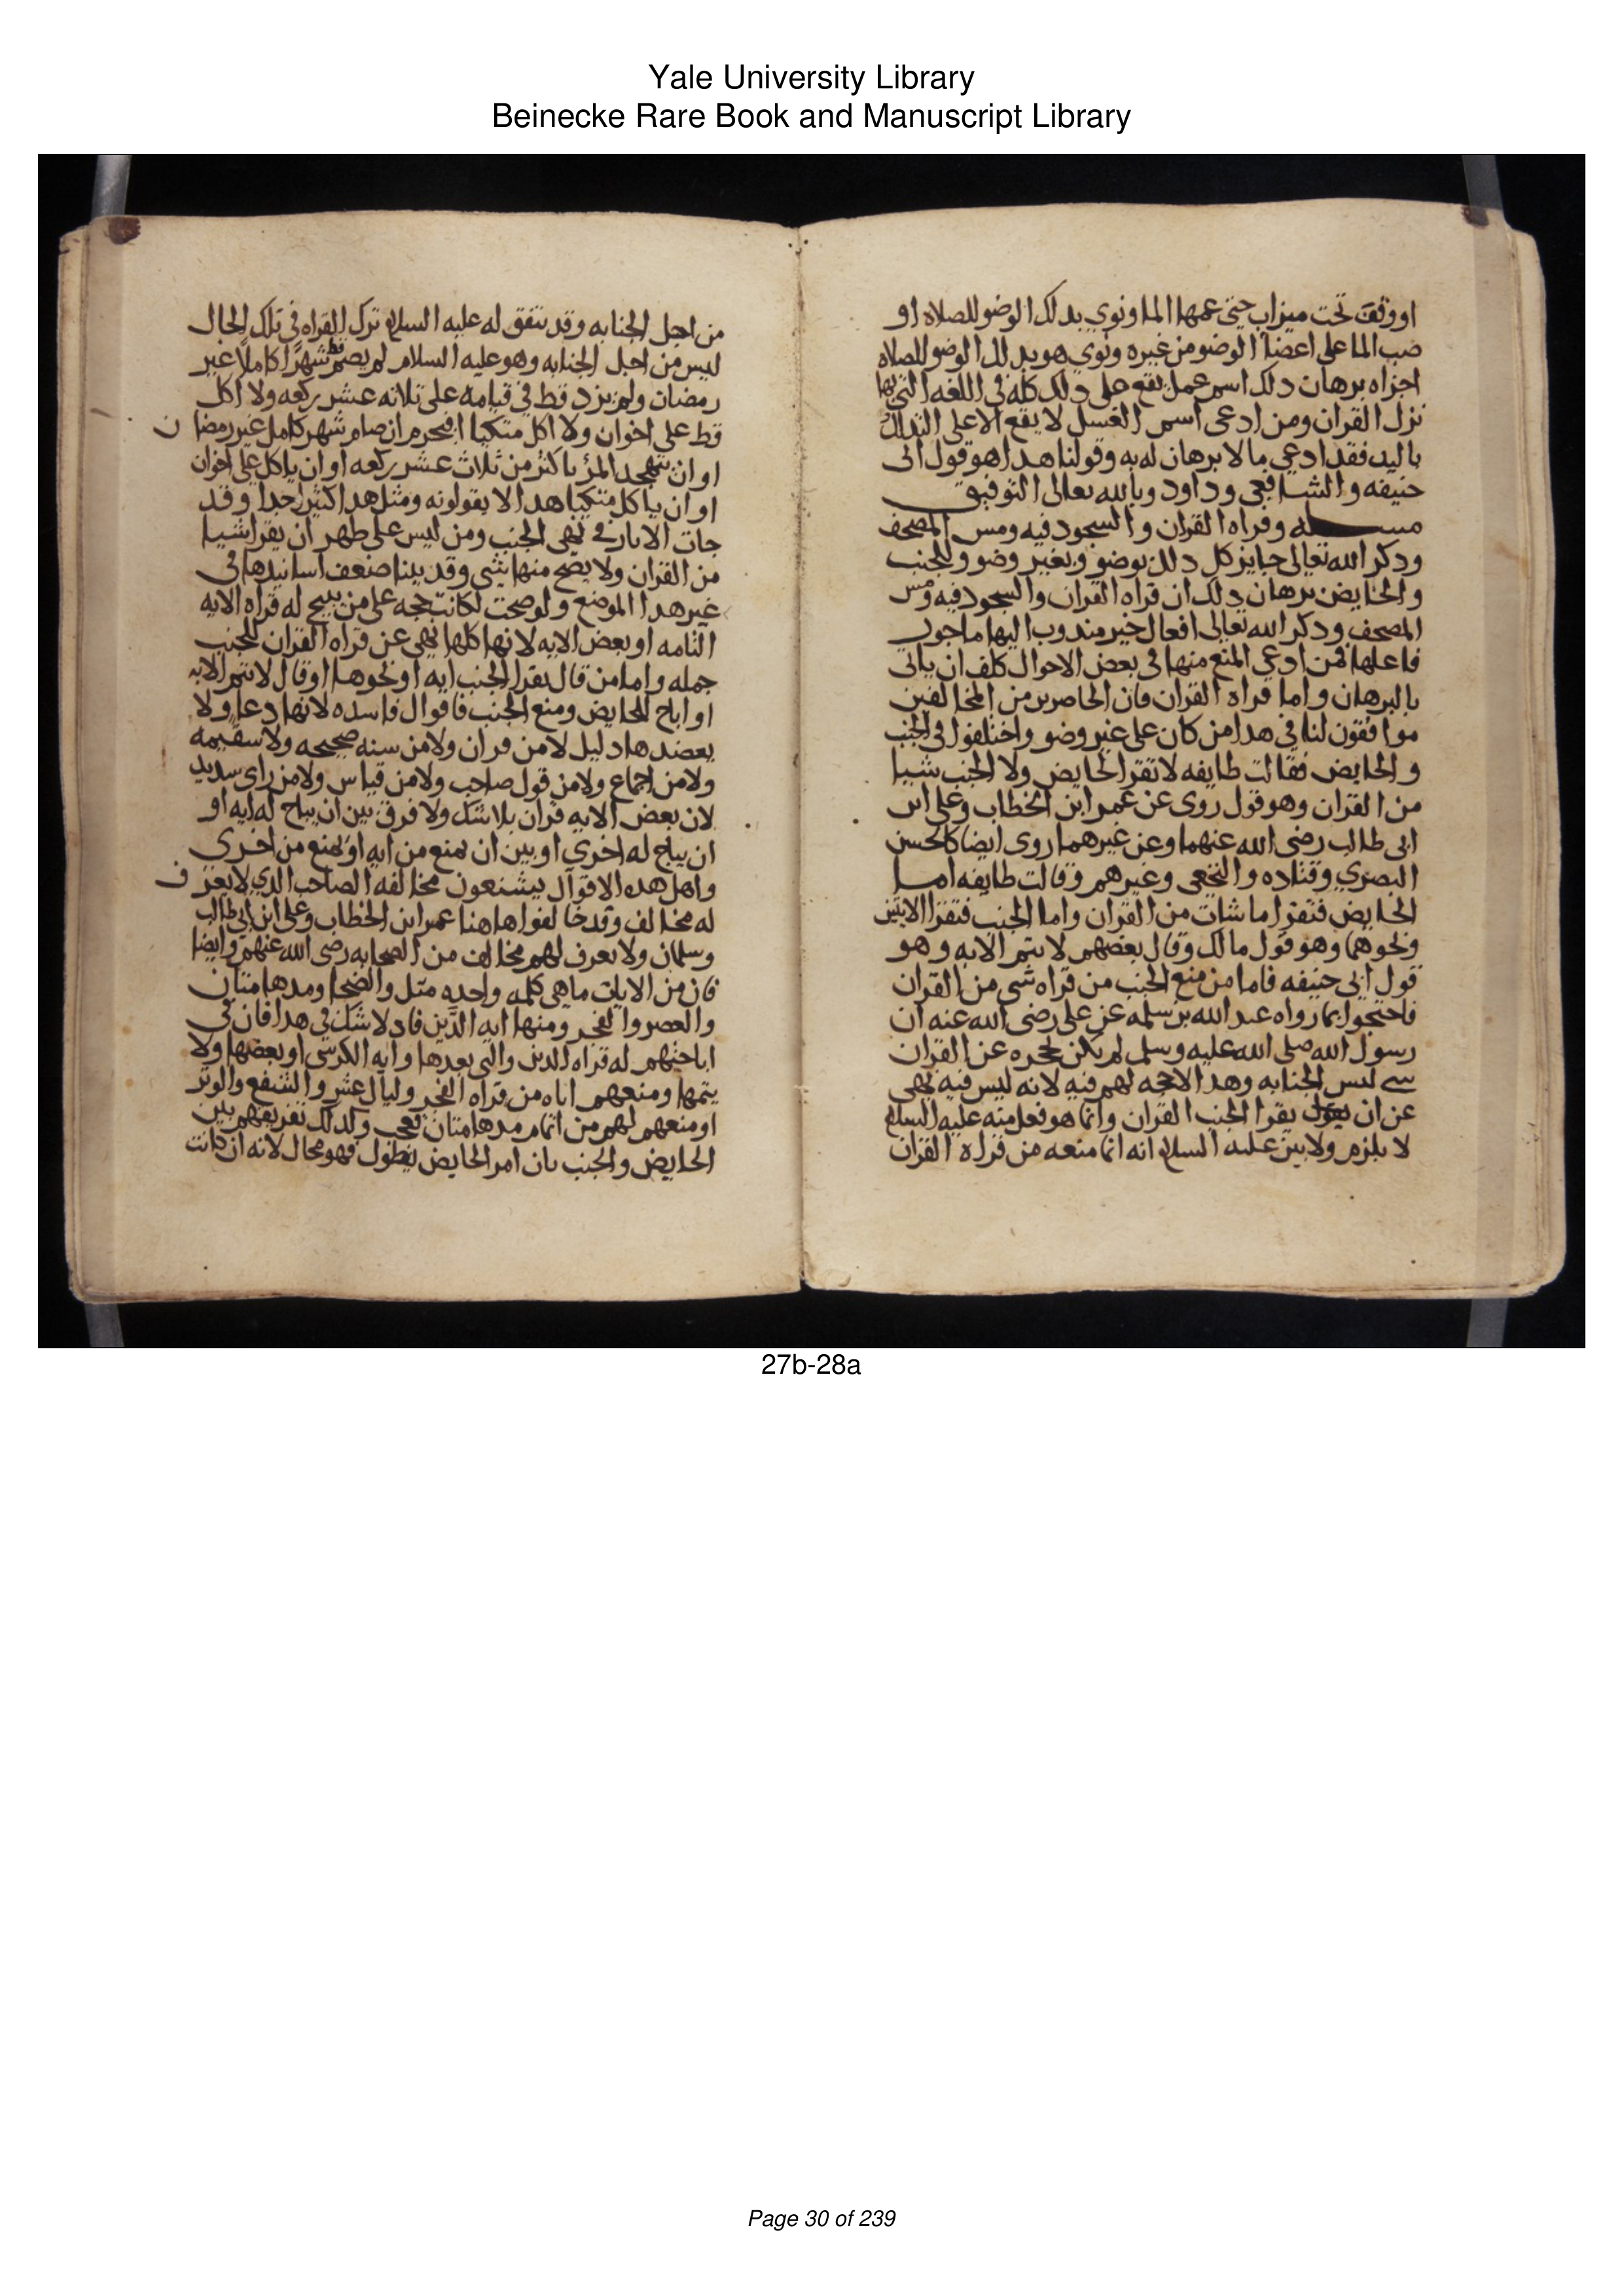 Yale University Library
Beinecke Rare Book and Manuscript Library
او وقف تحت ميزاب حتى عمها الما ونوي بدلك الوضو للصلاه او
صب الما على اعضا الوضو من غيره ونوي هو بدلك الوضو للصلاه
اجزاه برهان دلك اسم عمل يقع على دلك كله في اللغه التي بها
نزل القران ومن ادعى اسم الغسل لا يقع الا على التدلك
باليد فقد ادعى ما لا برهان له به وقولنا هدا هو قول ابي
حنيفه والشافعي وداود وبالله تعالى التوفيق
مسله وقراه القران والسجود فيه ومس المصحف
ودكر الله تعالى جايز كل دلك بوضو وبغير وضو وللجنب
والحايض برهان دلك ان قراه القران والسجود فيه ومس
المصحف ودكر الله تعالى افعال خير مندوب اليها ماجور
فاعلها فمن ادعى المنع منها في بعض الاحوال كلف ان ياتي
بالبرهان واما قراه القران فان الحاضرين من المخالفين
موافقون لنا في هدا من كان على غير وضو واختلفوا في الجنب
والحايض فقالت طايفه لا تقرا الحايض ولا الجنب شيا
من القران وهو قول روى عن عمر ابن الخطاب وعلى ابن
ابى طالب رضى الله عنهما وعن غيرهما روى ايضا كالحسن
البصري وقتاده والنخعى وغيرهم وقالت طايفه اما
الحايض فتقرا ما شات من القران واما الجنب فتقرا الايتين
ونحوهما وهو قول مالك وقال بعضهم لا يتم الايه وهو
قول ابى حنيفه فاما من منع الجنب من قراه شى من القران
فاحتجوا بما رواه عبد الله بن سلمه عن على رضى الله عنه ان
رسول الله صلى الله عليه وسلم لم يكن يحجزه عن القران
شى ليس الجنابه وهدا لا حجه لهم فيه لانه ليس فيه نهى
عن ان يقرا الجنب القران وانما هو فعل منه عليه السلام
لا يلزم ولا بين عليه السلام انه انما منعه من قراه القران
من اجل الجنابه وقد يتفق له عليه السلام ترك القراه في تلك الحال
ليس من اجل الجنابه وهو عليه السلام لم يصم قط شهرا كاملا غير
رمضان ولم يزد قط في قيامه على ثلاثه عشر ركعه ولا اكل
قط على اخوان ولا اكل متكيا افيحرم ان صام شهر كامل غير رمضان
او ان يتهجد المرؤ باكثر من ثلاث عشر ركعه او ان ياكل على اخوان
او ان ياكل متكيا هدا لا يقولونه ومثل هدا كثير جدا وقد
جات الاثار في نهى الجنب ومن ليس على طهر ان يقرا شيا
من القران ولا يصح منها شى وقد بينا ضعف اسانيدها في
غير هدا الموضع ولو صحت لكانت حجه على من يبيح له قراه الايه
التامه او بعض الايه لانها كلها نهى عن قراه القران للجنب
جمله واما من قال يقرا الجنب ايه او نحوها او قال لا يتم الايه
او اباح للحايض ومنع الجنب فاقوال فاسده لانها دعا ولا
يعضدها دليل لا من قران ولا من سنه صحيحه ولا سقيمه
ولا من اجماع ولا من قول صاحب ولا من قياس ولا من راى سديد
لان بعض الايه قران بلا شك ولا فرق بين ان يباح له ايه او
ان يباح له اخري او بين ان يمنع من ايه او يمنع من اخرى
واهل هده الاقوال يشنعون مخالفه الصاحب الدي لا يعرف
له مخالف وقد خالفوا هاهنا عمر ابن الخطاب وعلى ابن ابى طالب
وسلمان ولا يعرف لهم مخالف من الصحابه رضى الله عنهم وايضا
فان من الايات ما هى كلمه واحده مثل والضحا ومدهامتان
والعصر والفجر ومنها ايه الدين فاد لا شك في هدا فان في
اباحتهم له قراه الدين والتى بعدها وايه الكرسى او بعضها ولا
يتمها ومنعهم اياه من قراه الفجر وليال عشر والشفع والوتر
او منعهم لهم من اتمام مدهامتان لعجب ولدلك تفريقهم بين
الحايض والجنب بان امر الحايض يطول فهو محال لانه ان كانت
27b-28a
Page 30 of 239